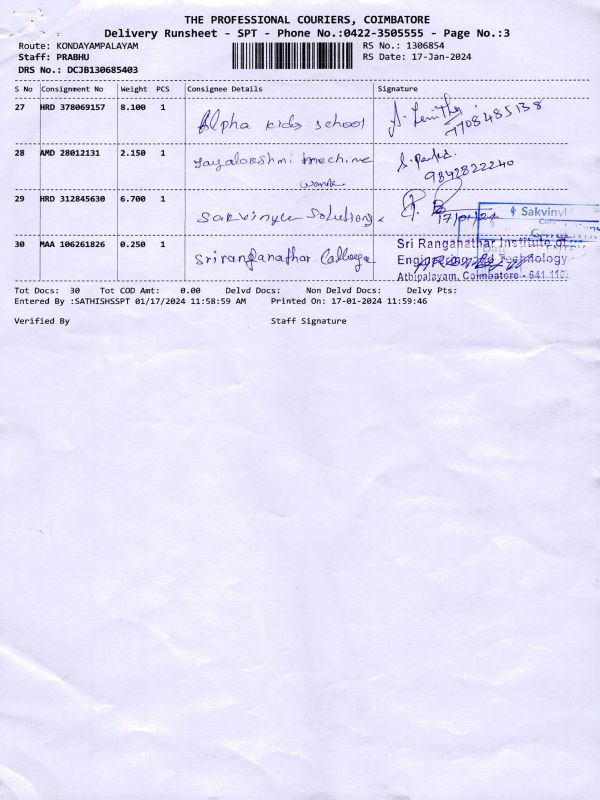 THE PROFESSIONAL COURIERS, COIMBATORE
Delivery Runsheet - SPT - Phone No.:0422-3505555 - Page No.:3
Route: KONDAYAMPALAYAM RS No.: 1306854
Staff: PRABHU RS Date: 17-Jan-2024
DRS No.: DCJB130685403
S No Consignment No Weight PCS Consignee Details Signature
27 HRD 378069157 8.100 1 Alpha kids school 7708485138
28 AMD 28012131 2.150 1 Jayalakshmi mechine work 9842822240
29 HRD 312845630 6.700 1 Sakvinyu Solutions 17/01/24
Sakvinyl
30 MAA 106261826 0.250 1 Sriranganathar College
Sri Ranganathar Institute of
Engineering and Technology
Athipalayam, Coimbatore - 641 110
Tot Docs: 30 Tot COD Amt: 0.00 Delvd Docs: Non Delvd Docs: Delvy Pts:
Entered By :SATHISHSSPT 01/17/2024 11:58:59 AM Printed On: 17-01-2024 11:59:46
Verified By Staff Signature